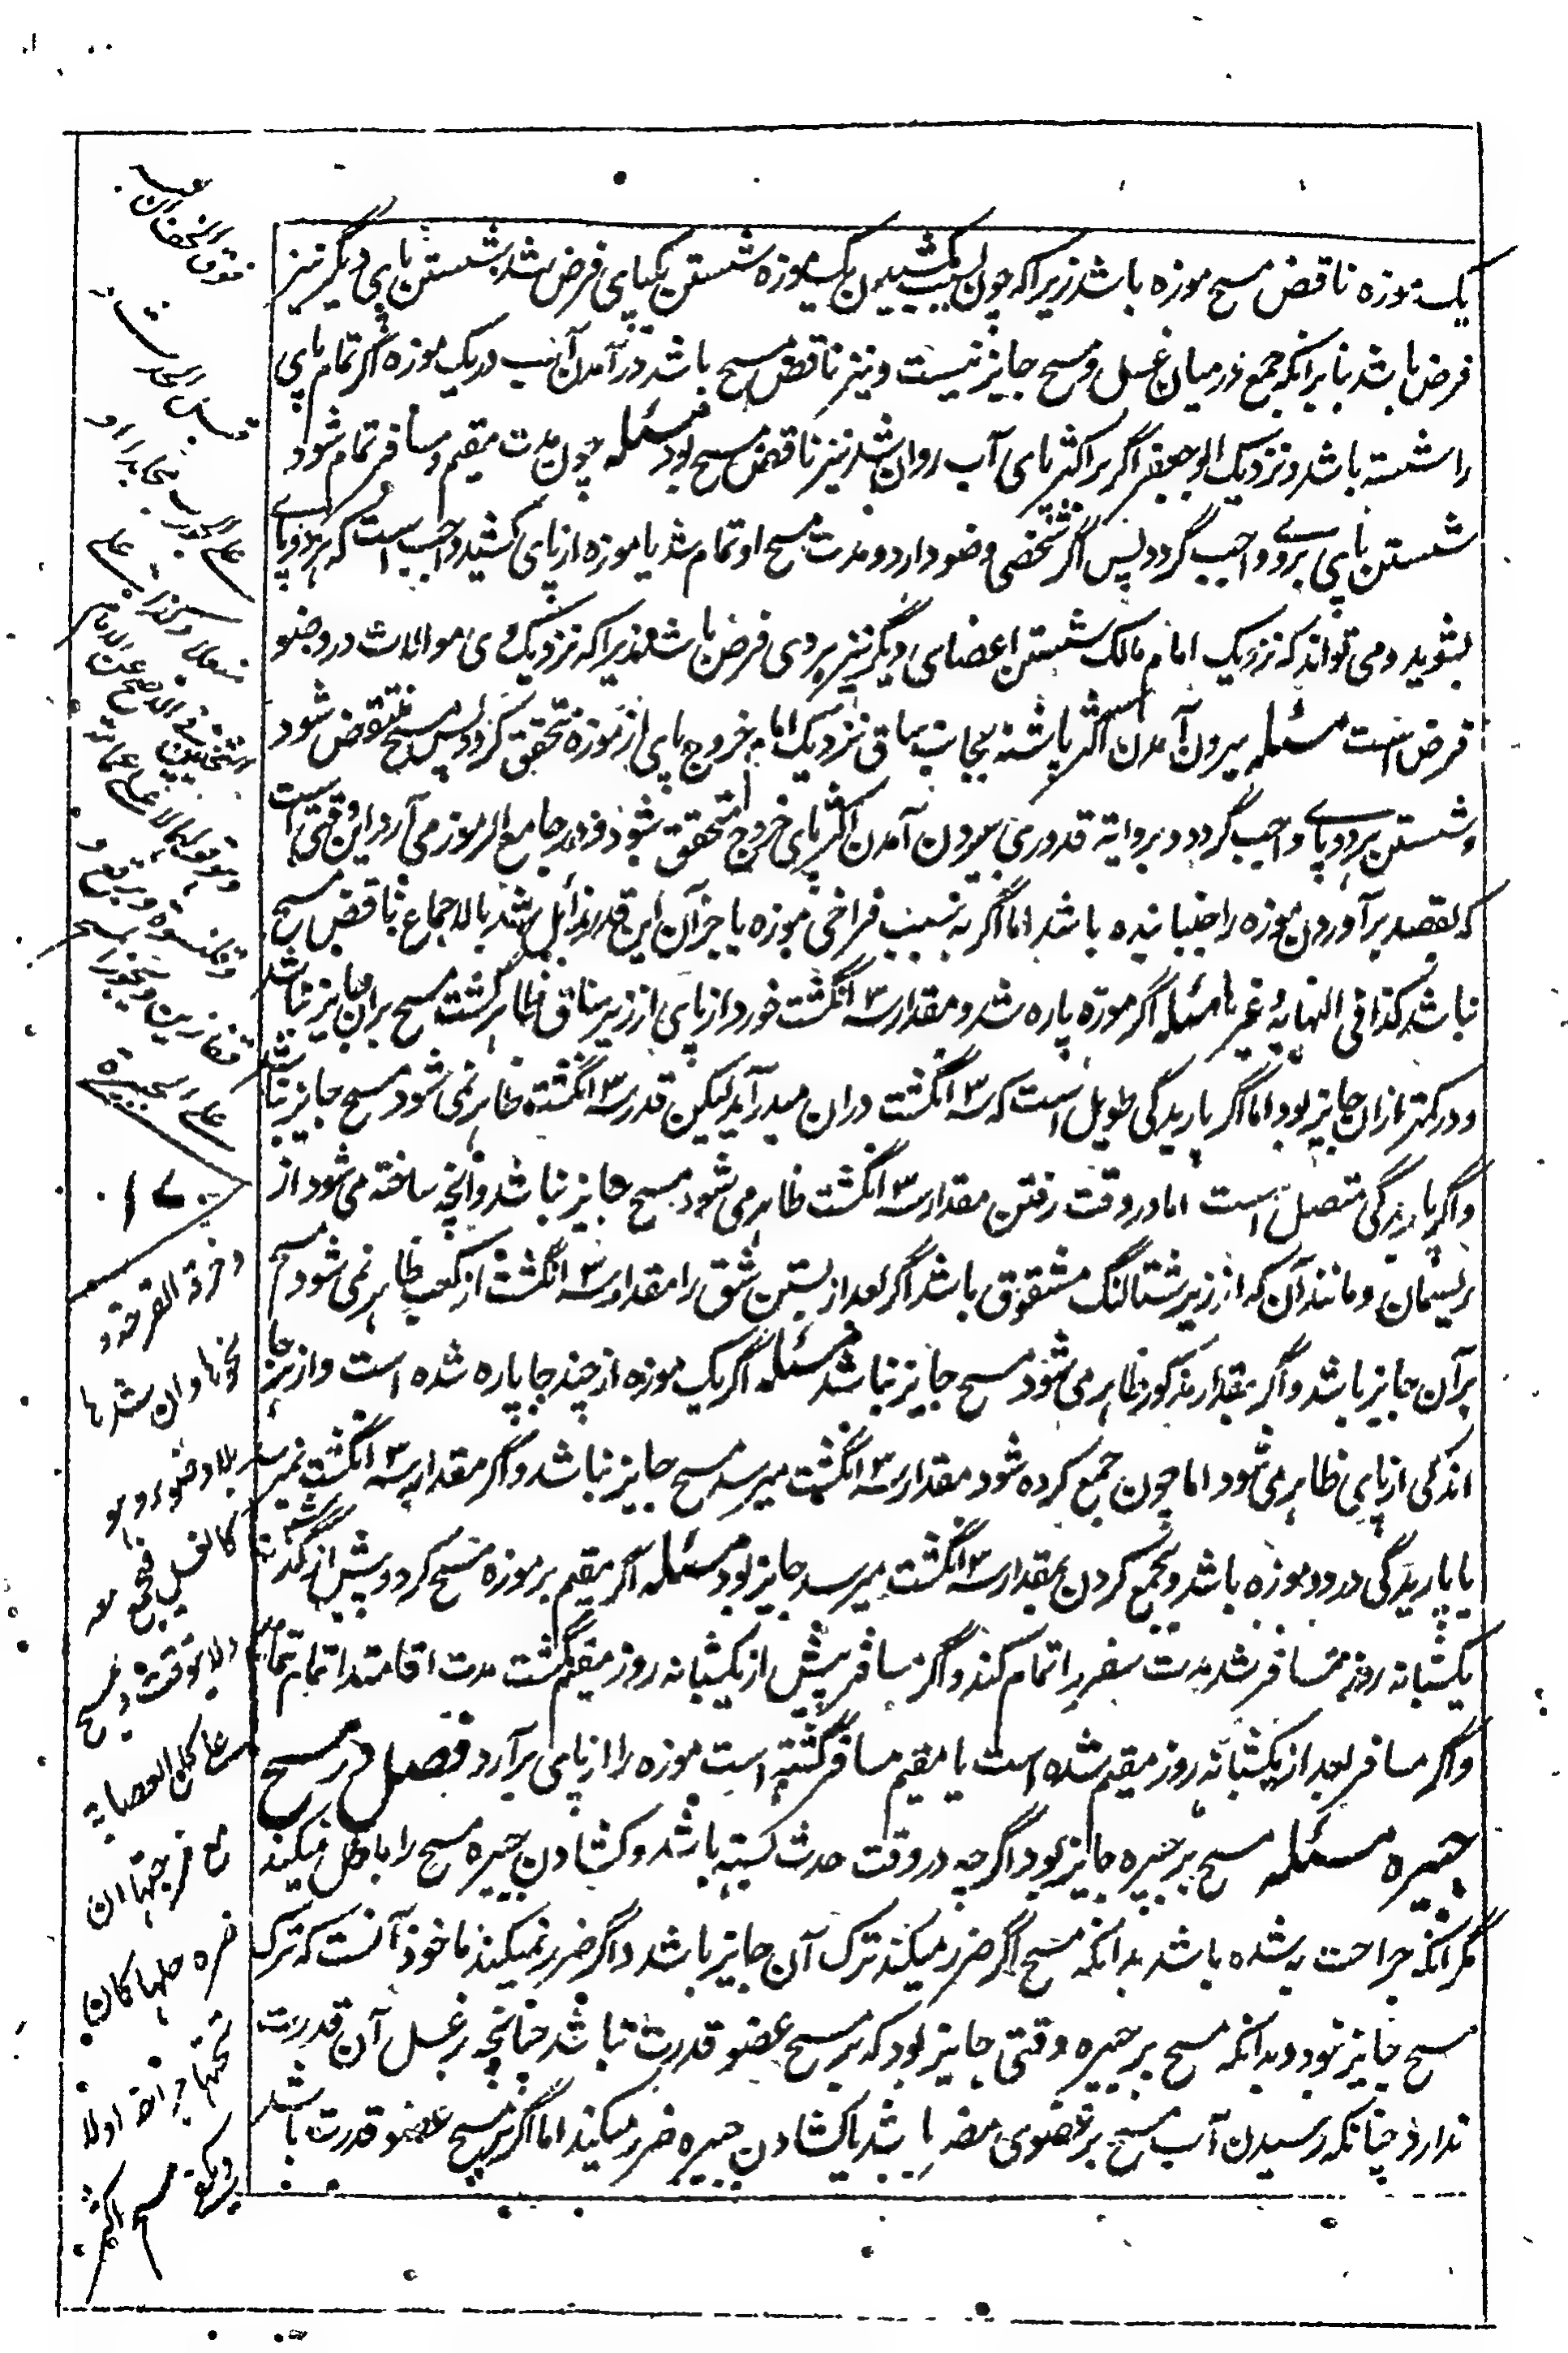 یک موزه ناقض مسح موزه باشد زیرا که چون بسبب کشیدن یک موزه شستن یکپای فرض شد شستن پای دیگر نیز
فرض باشد بنابرآنکه جمع در میان غسل و مسح جایز نیست و نیز ناقض مسح باشد در آمدن آب در یک موزه اگر تمام پای
را شسته باشد و نزدیک ابو جعفر اگر بر اکثر پای آب روان شد نیز ناقض مسح بود مسئله چون مدت مقیم و مسافر تمام شود
شستن پای بروے واجب گردد پس اگر شخصی وضو دارد و مدت مسح او تمام شد یا موزه از پای کشید واجب است که هر دو پاے
بشوید و می تواند که نزدیک امام مالک شستن اعضای دیگر نیز بر وی فرض باشد زیرا که نزدیک وی موالات در وضو
فرض است مسئله بیرون آمدن اکثر پاشنه بجانب ساق نزدیک امام خروج پای از موزه متحقق گردد پس مسح منتقض شود
و شستن هر دو پاے واجب گردد و بروایة قدوری بیرون آمدن اکثر پای خروج متحقق شود و در جامع الرموز می آرد این وقتی است
که بقصد بر آوردن موزه را جنبانیده باشد اما اگر به سبب فراخی موزه یا جز آن این قدر زائل شد بالاجماع ناقض مسح
نباشد کذا فی النهایة و غیرها مسئله اگر موزه پاره شد و مقدار سه ۳ انگشت خورد از پای از زیر ساق ظاهر گشت مسح بران جایز نباشد
و در کمتر ازان جایز بود اما اگر پاریدگی طویل است که سه ۳ انگشت دران میدرآید لیکن قدر سه ۳ انگشت ظاهر نمی شود مسح جایز باشد
و اگر پاریدگی متصل است اما در وقت رفتن مقدار سه ۳ انگشت ظاهر می شود مسح جایز نباشد و آنچه ساخته می شود از
ریسمان و مانند آن که از زیر شتالنگ مشقوق باشد اگر بعد از بستن شق را مقدار سه ۳ انگشت از کعب ظاهر نمی شود مسح
بر آن جایز باشد و اگر مقدار مذکور ظاهر می شود مسح جایز نباشد مسئله اگر یک موزه از چند جا پاره شده است و از هر جا
اندکی از پای ظاهر می شود اما چون جمع کرده شود مقدار سه ۳ انگشت میرسد مسح جایز نباشد و اگر مقدار سه ۳ انگشت نمیرسد
یا پاریدگی در دو موزه باشد و بجمع کردن بمقدار سه ۳ انگشت میرسد جایز بود مسئله اگر مقیم بر موزه مسح کرد و پیش از گذشتن
یکشبانه روز مسافر شد مدت سفر را تمام کند و اگر مسافر پیش از یکشبانه روز مقیم گشت مدت اقامت را تمام نماید
و اگر مسافر بعد از یکشبانه روز مقیم شده است یا مقیم مسافر گشته است موزه را از پای بر آرد فصل در مسح
جبیره مسئله مسح بر جبیره جایز بود اگرچه در وقت حدث بسته باشد و کشادن جبیره مسح را باطل نمیکند
مگر آنکه جراحت به شده باشد بدانکه مسح اگر ضرر میکند ترک آن جایز باشد و اگر ضرر نمیکند ماخوذ آنست که ترک
مسح جایز نبود و بدانکه مسح بر جبیره وقتی جایز بود که بر مسح عضو قدرت نباشد چنانچه بر غسل آن قدرت
ندارد چنانکه رسیدن آب مسح بر عضوی مضر باشد یا کشادن جبیره ضرر میکند اما اگر بر مسح عضو قدرت باشد
فوق الخفان
علی الجبیرة
۱۷
و خرقة القرحة و
نحوها و ان شدها
بلا وضوء و هو
کالغسل فیجمع معه
ولا یتوقت و یمسح
علی کل العصابة
مع فرجتها ان
ضره حلها کان
تحتها جراحة اولا
و یکفی مسح اکثر